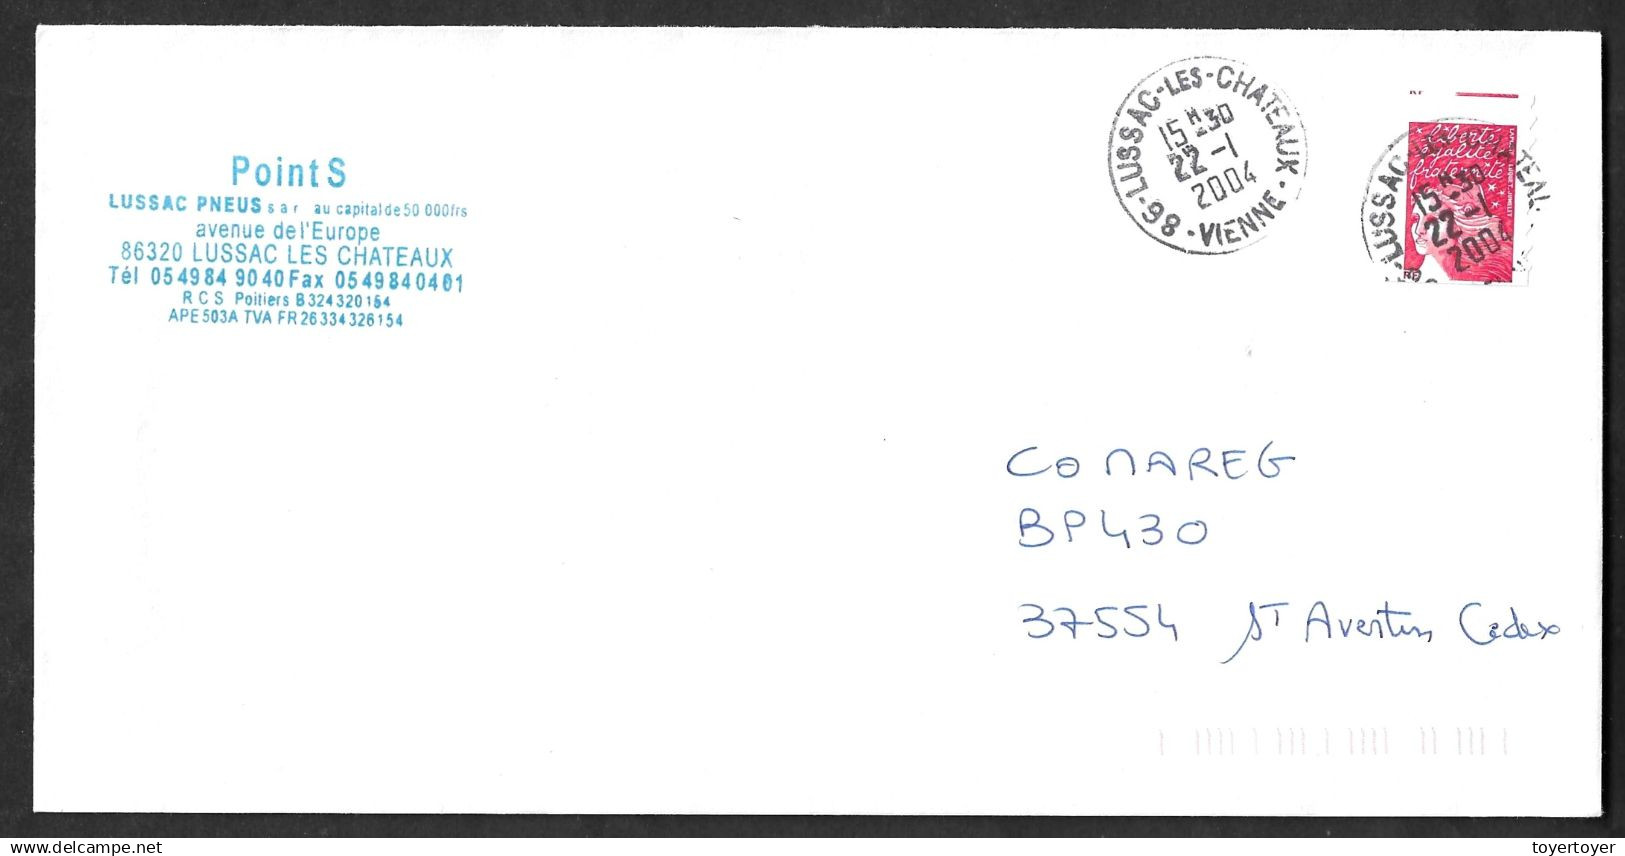 Point S
LUSSAC PNEUS s a r au capital de 50 000frs
avenue de l'Europe
86320 LUSSAC LES CHATEAUX
Tél 05 49 84 90 40 Fax 05 49 84 04 01
R C S Poitiers B 324 320 154
APE 503A TVA FR 26 334 326 154
LUSSAC-LES-CHATEAUX
15 H 30
22 -1
2004
86 - VIENNE
RF
liberté
égalité
fraternité
LUSSAC-LES-CHATEAU
15 H 30
22 -1
2004
RF
COMAREG
BP430
37554 ST Avertin Cedex
delcampe.net
toyertoyer